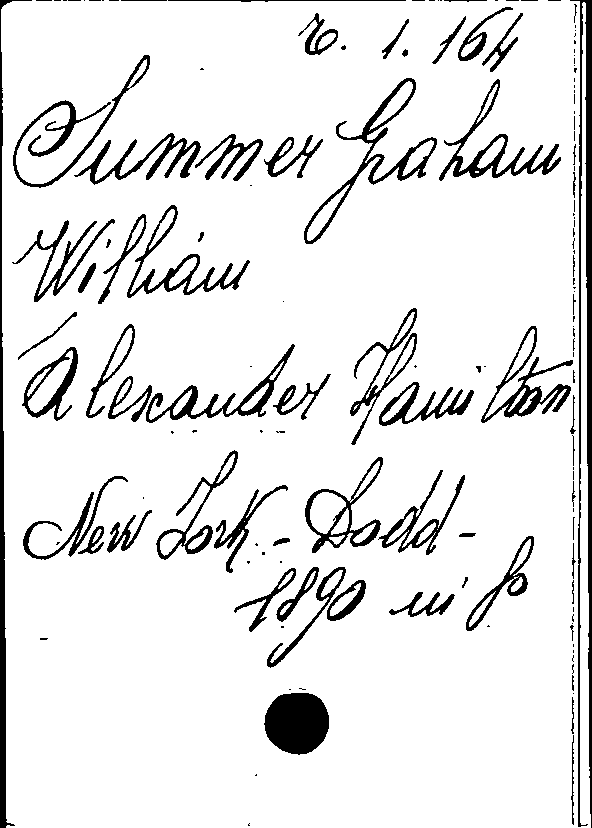 7. 1. 164
Summer Graham
William
Alexander Hamilton
New York - Dodd -
1890 in 8º